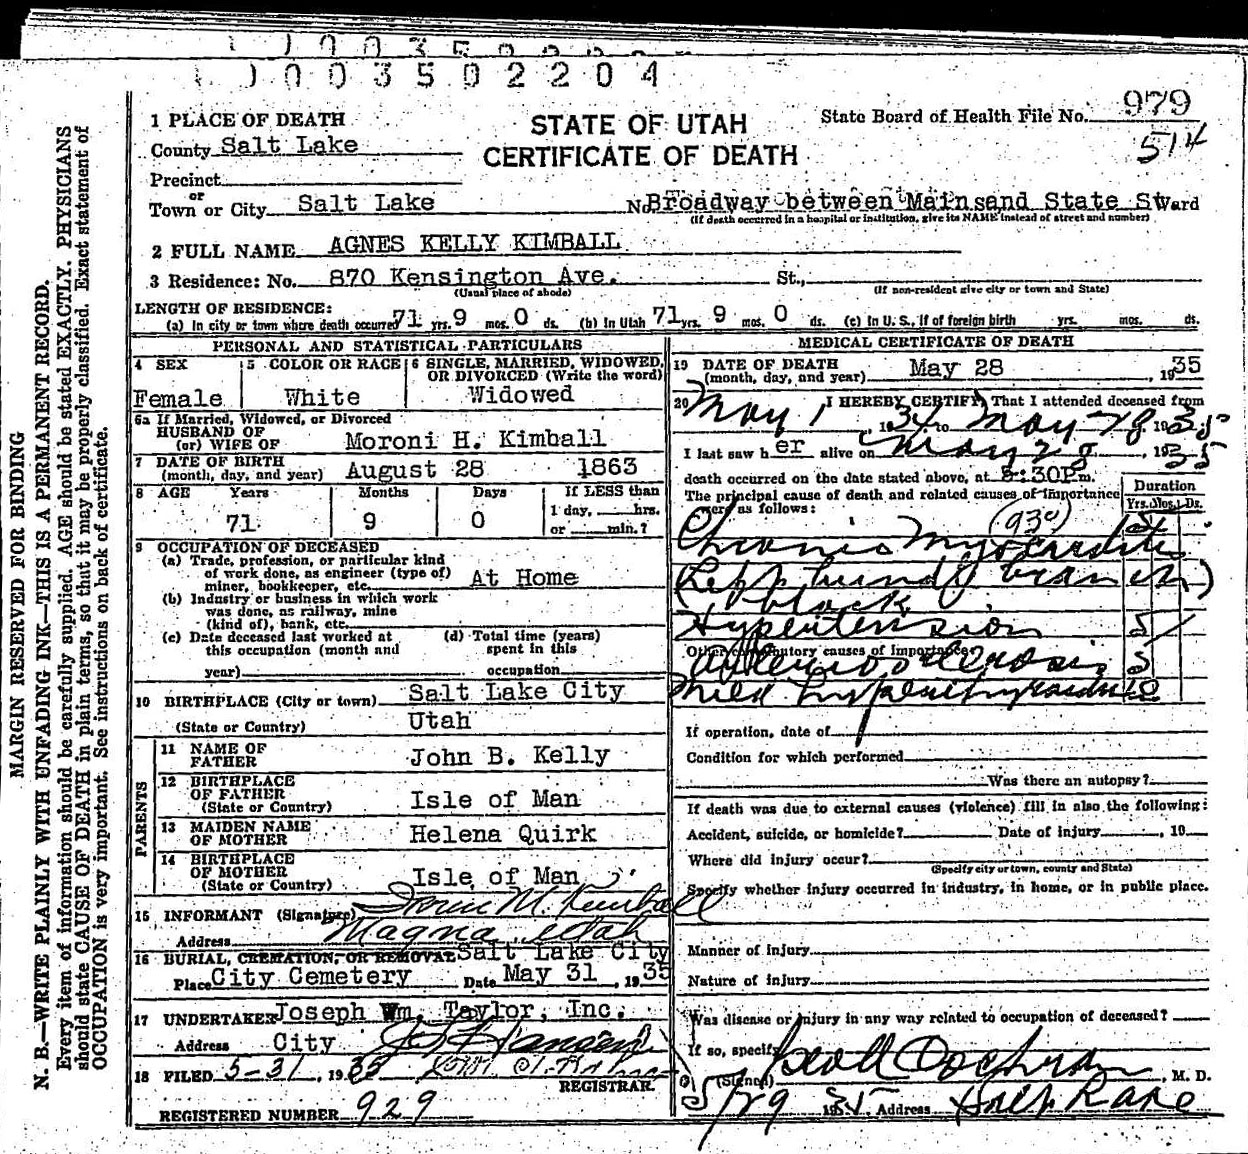 1 0 0 3 5 0 2 2 0 4
979
514
State Board of Health File No.
STATE OF UTAH
CERTIFICATE OF DEATH
1 PLACE OF DEATH
County Salt Lake
Precinct
or
Town or City Salt Lake No. Broadway between Main and State St Ward
(If death occurred in a hospital or institution, give its NAME instead of street and number)
2 FULL NAME AGNES KELLY KIMBALL
3 Residence: No. 870 Kensington Ave. St.,
(Usual place of abode) (If non-resident give city or town and State)
LENGTH OF RESIDENCE:
(a) In city or town where death occurred 71 yrs. 9 mos. 0 ds. (b) In Utah 71 yrs. 9 mos. 0 ds. (c) In U. S., if of foreign birth yrs. mos. ds.
PERSONAL AND STATISTICAL PARTICULARS
4 SEX
Female
5 COLOR OR RACE
White
6 SINGLE, MARRIED, WIDOWED,
OR DIVORCED (Write the word)
Widowed
6a If Married, Widowed, or Divorced
HUSBAND OF
(or) WIFE OF Moroni H. Kimball
7 DATE OF BIRTH
(month, day, and year) August 28 1863
8 AGE Years Months Days If LESS than
1 day, hrs.
71 9 0 or min.?
9 OCCUPATION OF DECEASED
(a) Trade, profession, or particular kind
of work done, as engineer (type of)
miner, bookkeeper, etc. At Home
(b) Industry or business in which work
was done, as railway, mine
(kind of), bank, etc.
(c) Date deceased last worked at
this occupation (month and
year)
(d) Total time (years)
spent in this
occupation
10 BIRTHPLACE (City or town) Salt Lake City
(State or Country) Utah
PARENTS
11 NAME OF
FATHER John B. Kelly
12 BIRTHPLACE
OF FATHER
(State or Country) Isle of Man
13 MAIDEN NAME
OF MOTHER Helena Quirk
14 BIRTHPLACE
OF MOTHER
(State or Country) Isle of Man
15 INFORMANT (Signature) M. Kimball
Address Magna Utah
16 BURIAL, CREMATION, OR REMOVAL Salt Lake City
Place City Cemetery Date May 31, 1935
17 UNDERTAKER Joseph Wm. Taylor, Inc.
Address City
18 FILED 5-31, 1935
REGISTRAR.
REGISTERED NUMBER 929
MEDICAL CERTIFICATE OF DEATH
19 DATE OF DEATH
(month, day, and year) May 28, 1935
20 I HEREBY CERTIFY, That I attended deceased from
May 1, 1934 to May 28 1935
I last saw her alive on May 28, 1935
death occurred on the date stated above, at 8:30P m.
The principal cause of death and related causes of importance
were as follows:
Duration
Yrs. Mos. Ds.
(93c)
Chronic Myocarditis
(Left bundle branch)
block
Hypertension 5
Other contributory causes of importance?
Arteriosclerosis 5
Mild hyperthyroidism 10
If operation, date of
Condition for which performed
Was there an autopsy?
If death was due to external causes (violence) fill in also the following:
Accident, suicide, or homicide? Date of injury, 19
Where did injury occur?
(Specify city or town, county and State)
Specify whether injury occurred in industry, in home, or in public place.
Manner of injury
Nature of injury
Was disease or injury in any way related to occupation of deceased?
If so, specify
(Signed) Cochran, M. D.
5/29 1935 Address Salt Lake
MARGIN RESERVED FOR BINDING
N. B.—WRITE PLAINLY WITH UNFADING INK—THIS IS A PERMANENT RECORD.
Every item of information should be carefully supplied. AGE should be stated EXACTLY. PHYSICIANS
should state CAUSE OF DEATH in plain terms, so that it may be properly classified. Exact statement of
OCCUPATION is very important. See instructions on back of certificate.